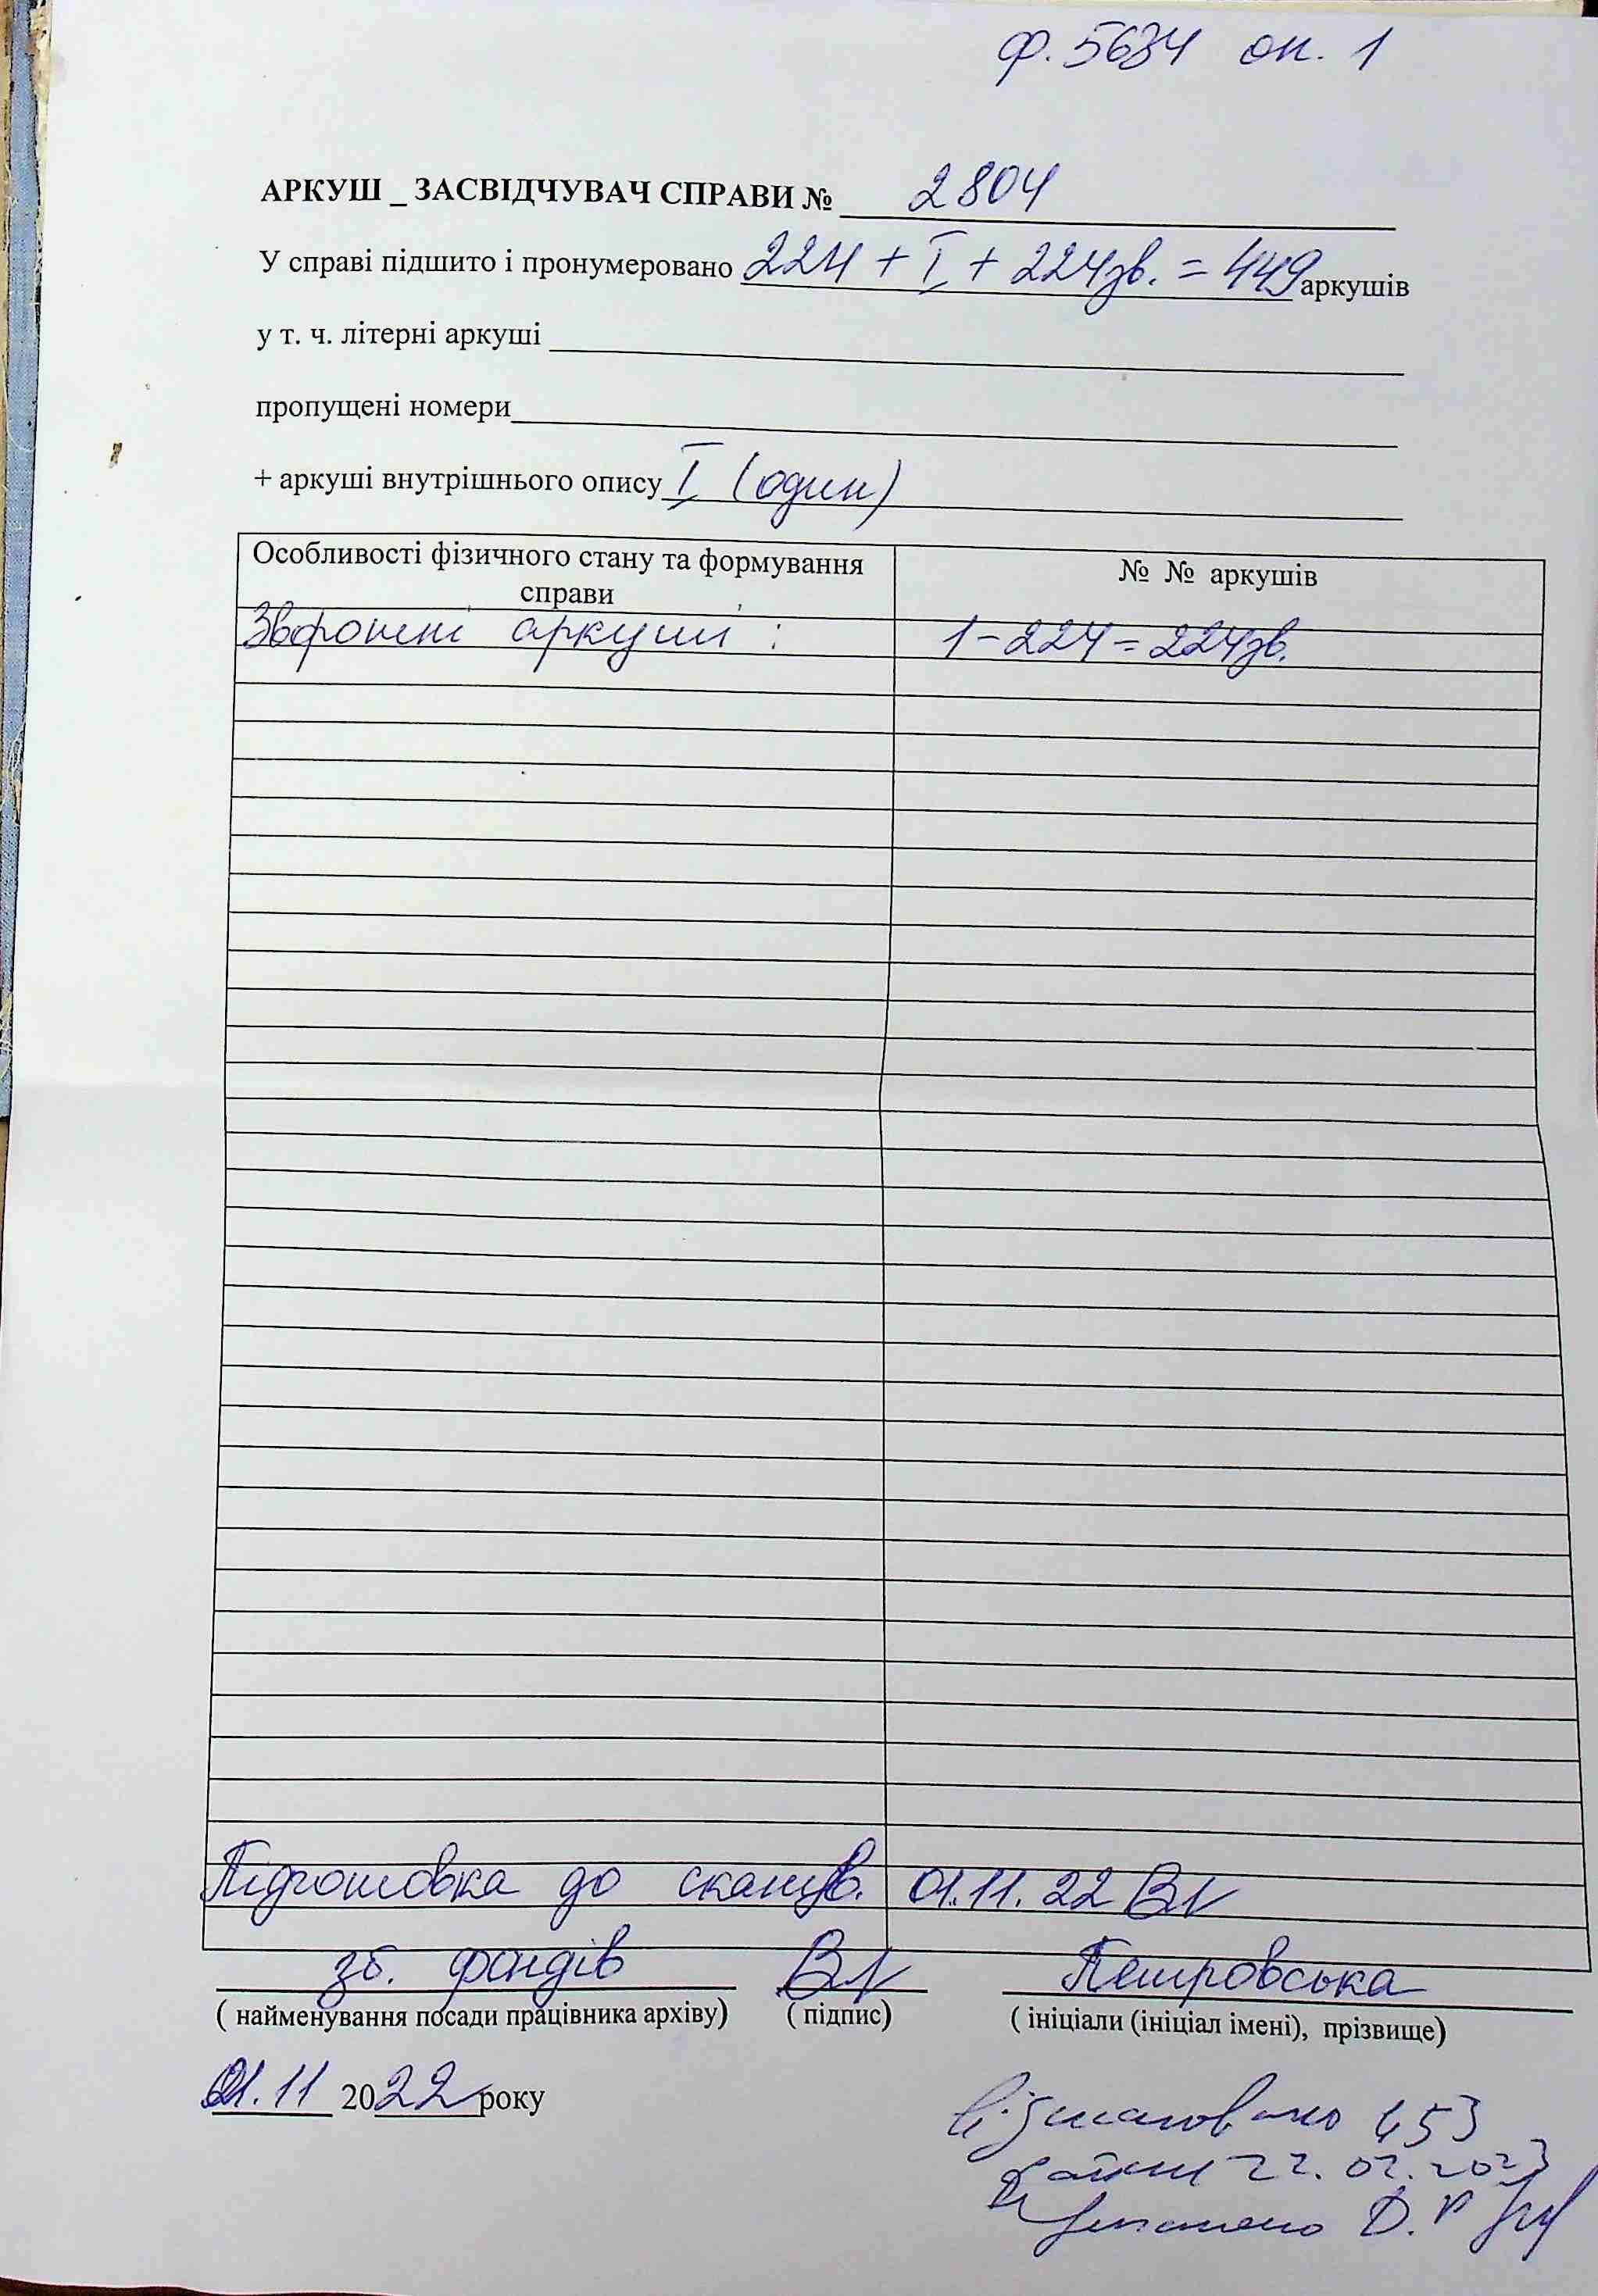 ф. 5634 оп. 1
АРКУШ _ ЗАСВІДЧУВАЧ СПРАВИ № 2804
У справі підшито і пронумеровано 224 + I + 224зв. = 449 аркушів
у т. ч. літерні аркуші
пропущені номери
+ аркуші внутрішнього опису I (один)
Особливості фізичного стану та формування справи
№ № аркушів
Зворотні аркуші :
1-224 = 224зв.
Підготовка до сканув. 01.11.22 ВП
зб. фондів
Петровська
( найменування посади працівника архіву) ( підпис) ( ініціали (ініціал імені), прізвище)
01.11 2022 року
Відскановано 453
файли 22.02.2023
Д. Р